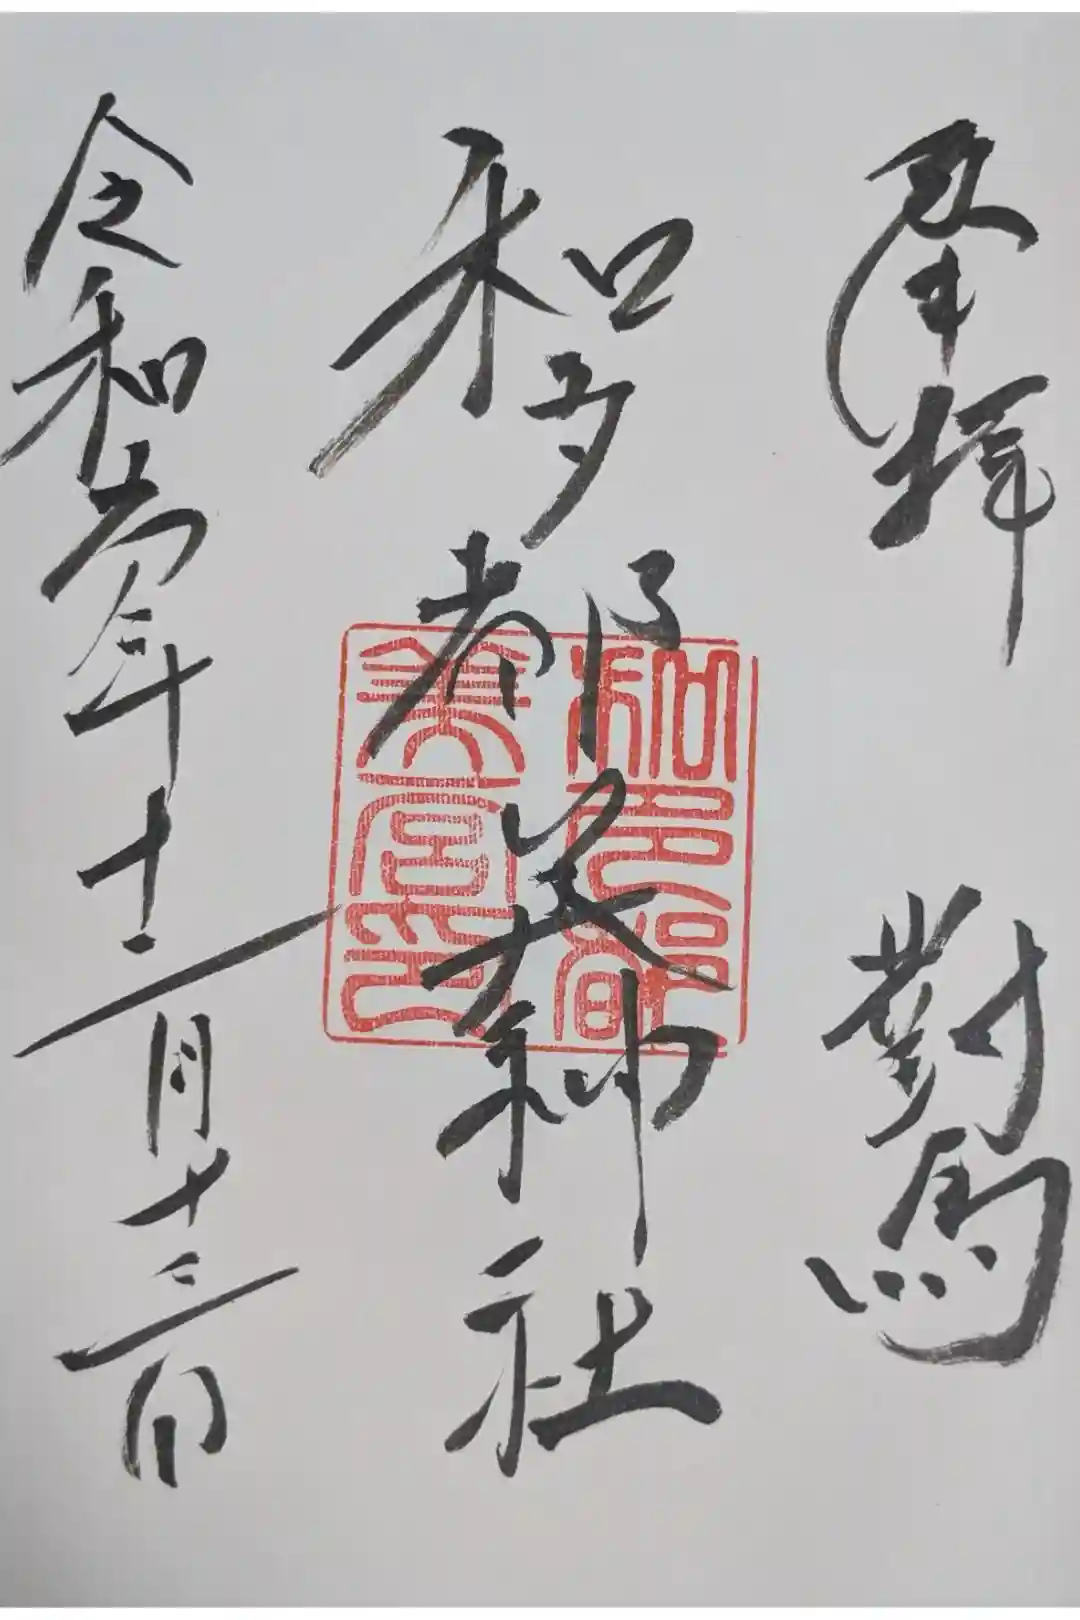 奉拝 對馬
和多都美神社
令和六年十二月十三日
和多都
美宮印